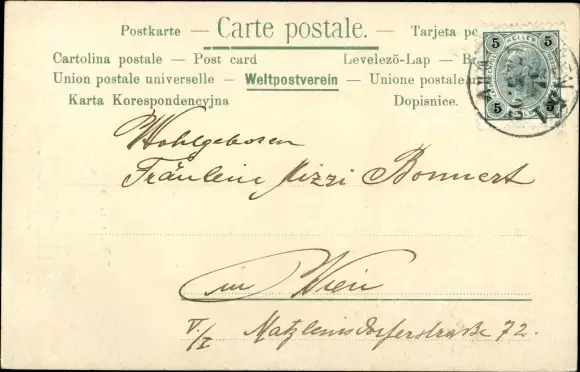 Postkarte — Carte postale. — Tarjeta po
Cartolina postale — Post card Levelezö-Lap — B
Union postale universelle — Weltpostverein — Unione postale
Karta Korespondencyjna Dopisnice.
5 HELLER 5
5 5
WIEN
Wohlgeboren
Fräulein Mizzi Bonnert
in Wien
V/I Matzleinsdorferstraße 72.